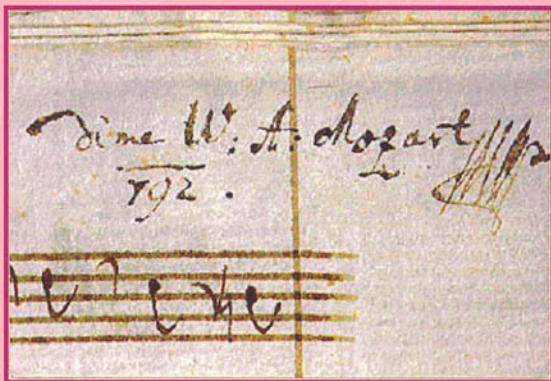 di me W: A: Mozart
792.